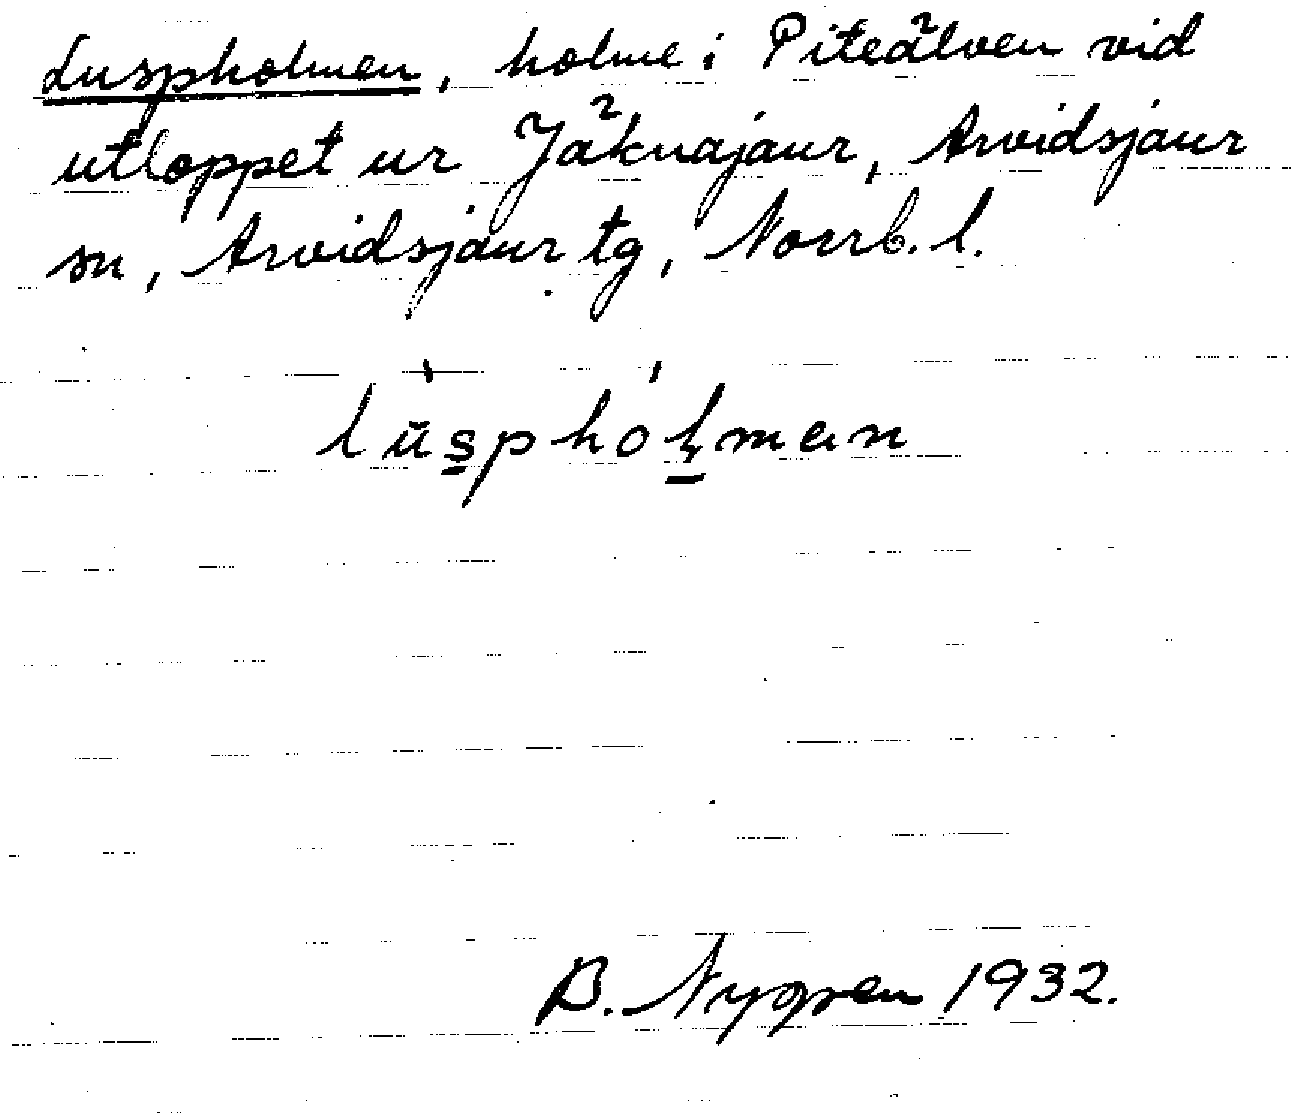 Luspholmen, holme i Piteälven vid
utloppet ur Jäknajaur, Arvidsjaur
sn, Arvidsjaur tg, Norrb. l.
lùsphólman
B. Nygren 1932.